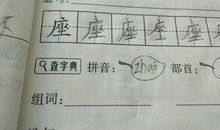 组词:
座 座 座 座 座 座
查字典 拼音: zhuo 部首:
组词: